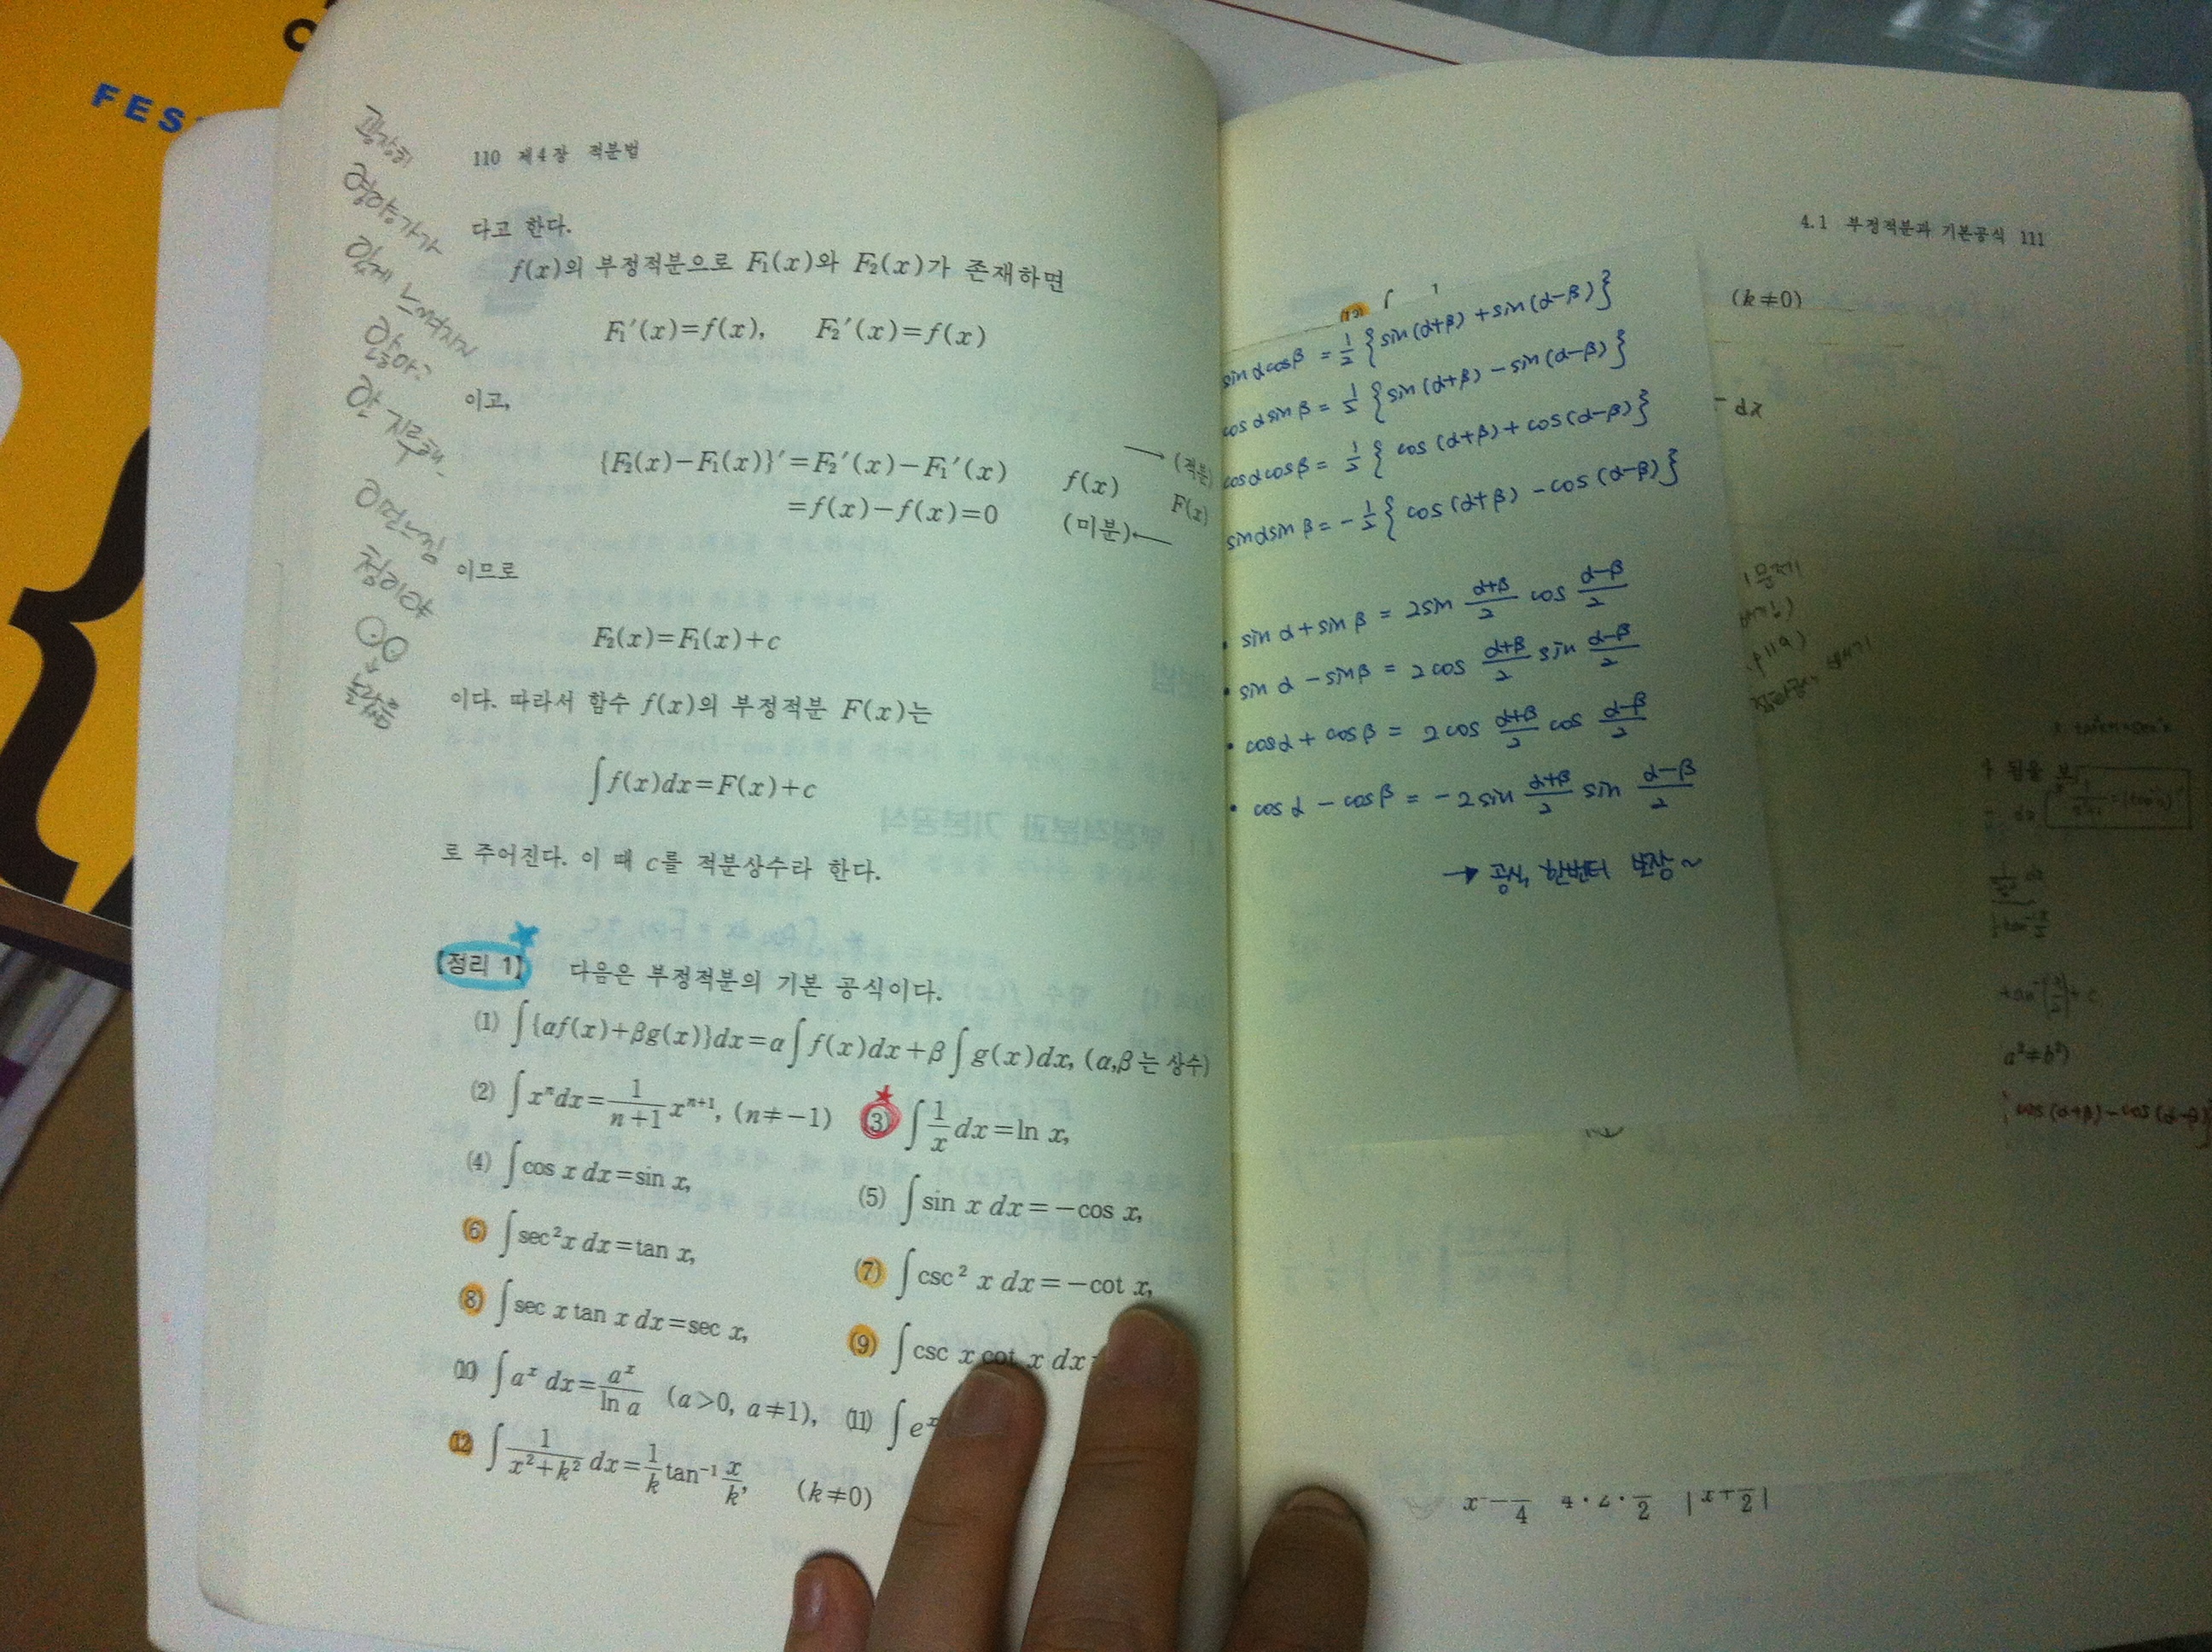 FES
굉장히
영양가가
있게 느껴지지
않아?
안 지루해.
이런느낌
청이야
놀람
110 제4장 적분법
다고 한다.
f(x)의 부정적분으로 F₁(x)와 F₂(x)가 존재하면
F₁′(x)=f(x), F₂′(x)=f(x)
이고,
{F₂(x)−F₁(x)}′=F₂′(x)−F₁′(x)
=f(x)−f(x)=0
f(x) → (적분) F(x)
(미분)←
이므로
F₂(x)=F₁(x)+c
이다. 따라서 함수 f(x)의 부정적분 F(x)는
∫f(x)dx=F(x)+c
로 주어진다. 이 때 c를 적분상수라 한다.
【정리 1】 다음은 부정적분의 기본 공식이다.
(1) ∫{αf(x)+βg(x)}dx=α∫f(x)dx+β∫g(x)dx, (α,β는 상수)
(2) ∫xⁿdx=1/(n+1) xⁿ⁺¹, (n≠−1) (3) ∫1/x dx=ln x,
(4) ∫cos x dx=sin x, (5) ∫sin x dx=−cos x,
(6) ∫sec²x dx=tan x, (7) ∫csc² x dx=−cot x,
(8) ∫sec x tan x dx=sec x, (9) ∫csc x cot x dx
(10) ∫aˣ dx=aˣ/ln a (a>0, a≠1), (11) ∫eˣ
(12) ∫1/(x²+k²) dx=1/k tan⁻¹ x/k, (k≠0)
4.1 부정적분과 기본공식 111
(k≠0)
sinαcosβ = 1/2 {sin(α+β) + sin(α−β)}
cosαsinβ = 1/2 {sin(α+β) − sin(α−β)}
cosαcosβ = 1/2 {cos(α+β) + cos(α−β)}
sinαsinβ = −1/2 {cos(α+β) − cos(α−β)}
dx
• sinα + sinβ = 2sin (α+β)/2 cos (α−β)/2
• sinα − sinβ = 2cos (α+β)/2 sin (α−β)/2
• cosα + cosβ = 2cos (α+β)/2 cos (α−β)/2
• cosα − cosβ = −2sin (α+β)/2 sin (α−β)/2
→ 공식, 한번더 보장~
a²≠b²)
cos(α+β)−cos(α−β)}